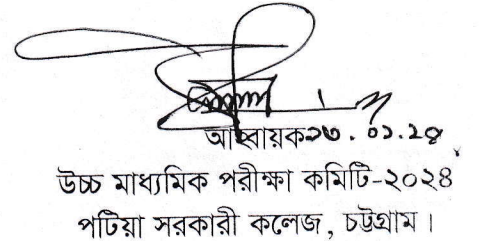 আহ্বায়ক ২৩.০১.২৪
উচ্চ মাধ্যমিক পরীক্ষা কমিটি-২০২৪
পটিয়া সরকারী কলেজ, চট্টগ্রাম।